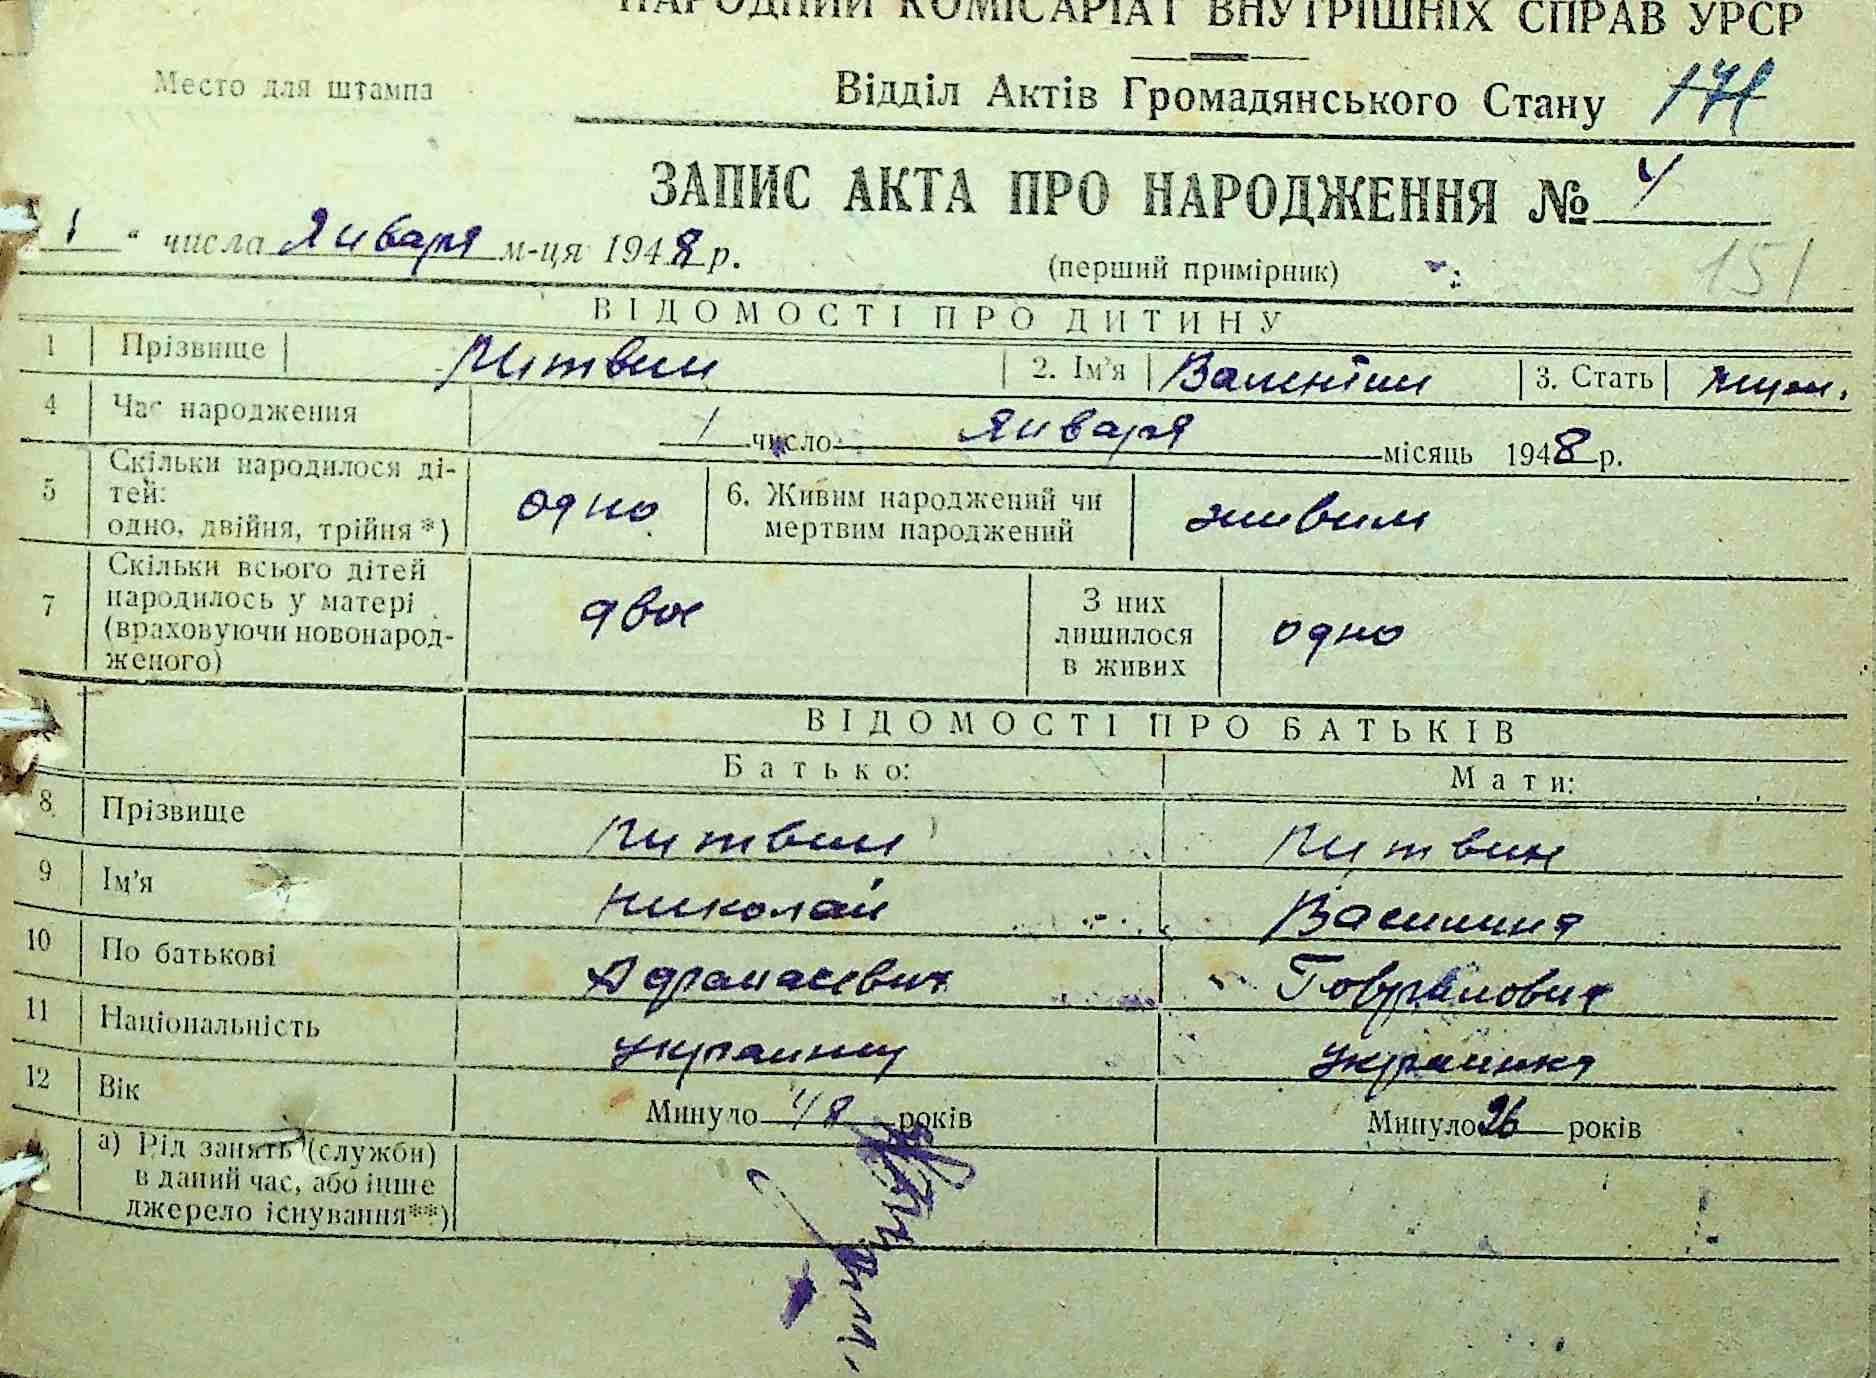 НАРОДНИЙ КОМІСАРІАТ ВНУТРІШНІХ СПРАВ УРСР
Место для штампа
Відділ Актів Громадянського Стану 171
ЗАПИС АКТА ПРО НАРОДЖЕННЯ № 4
1 " числа Января м-ця 1948 р.
(перший примірник)
151
ВІДОМОСТІ ПРО ДИТИНУ
1 Прізвище Литвин 2. Ім'я Валентин 3. Стать муж.
4 Час народження 1 число Января місяць 1948 р.
5 Скільки народилося ді-
тей:
одно, двійня, трійня *) одно 6. Живим народжений чи
мертвим народжений живим
7 Скільки всього дітей
народилось у матері
(враховуючи новонарод-
женого) двое З них
лишилося
в живих одно
ВІДОМОСТІ ПРО БАТЬКІВ
Батько: Мати:
8 Прізвище Литвин Литвин
9 Ім'я Николай Василина
10 По батькові
11 Національність украинец украинка
12 Вік Минуло 48 років Минуло 26 років
а) Рід занять (служби)
в даний час, або інше
джерело існування**)